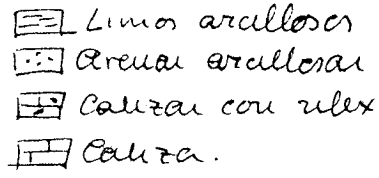 Limos arcillosos
Arenas arcillosas
Calizas con silex
Caliza.